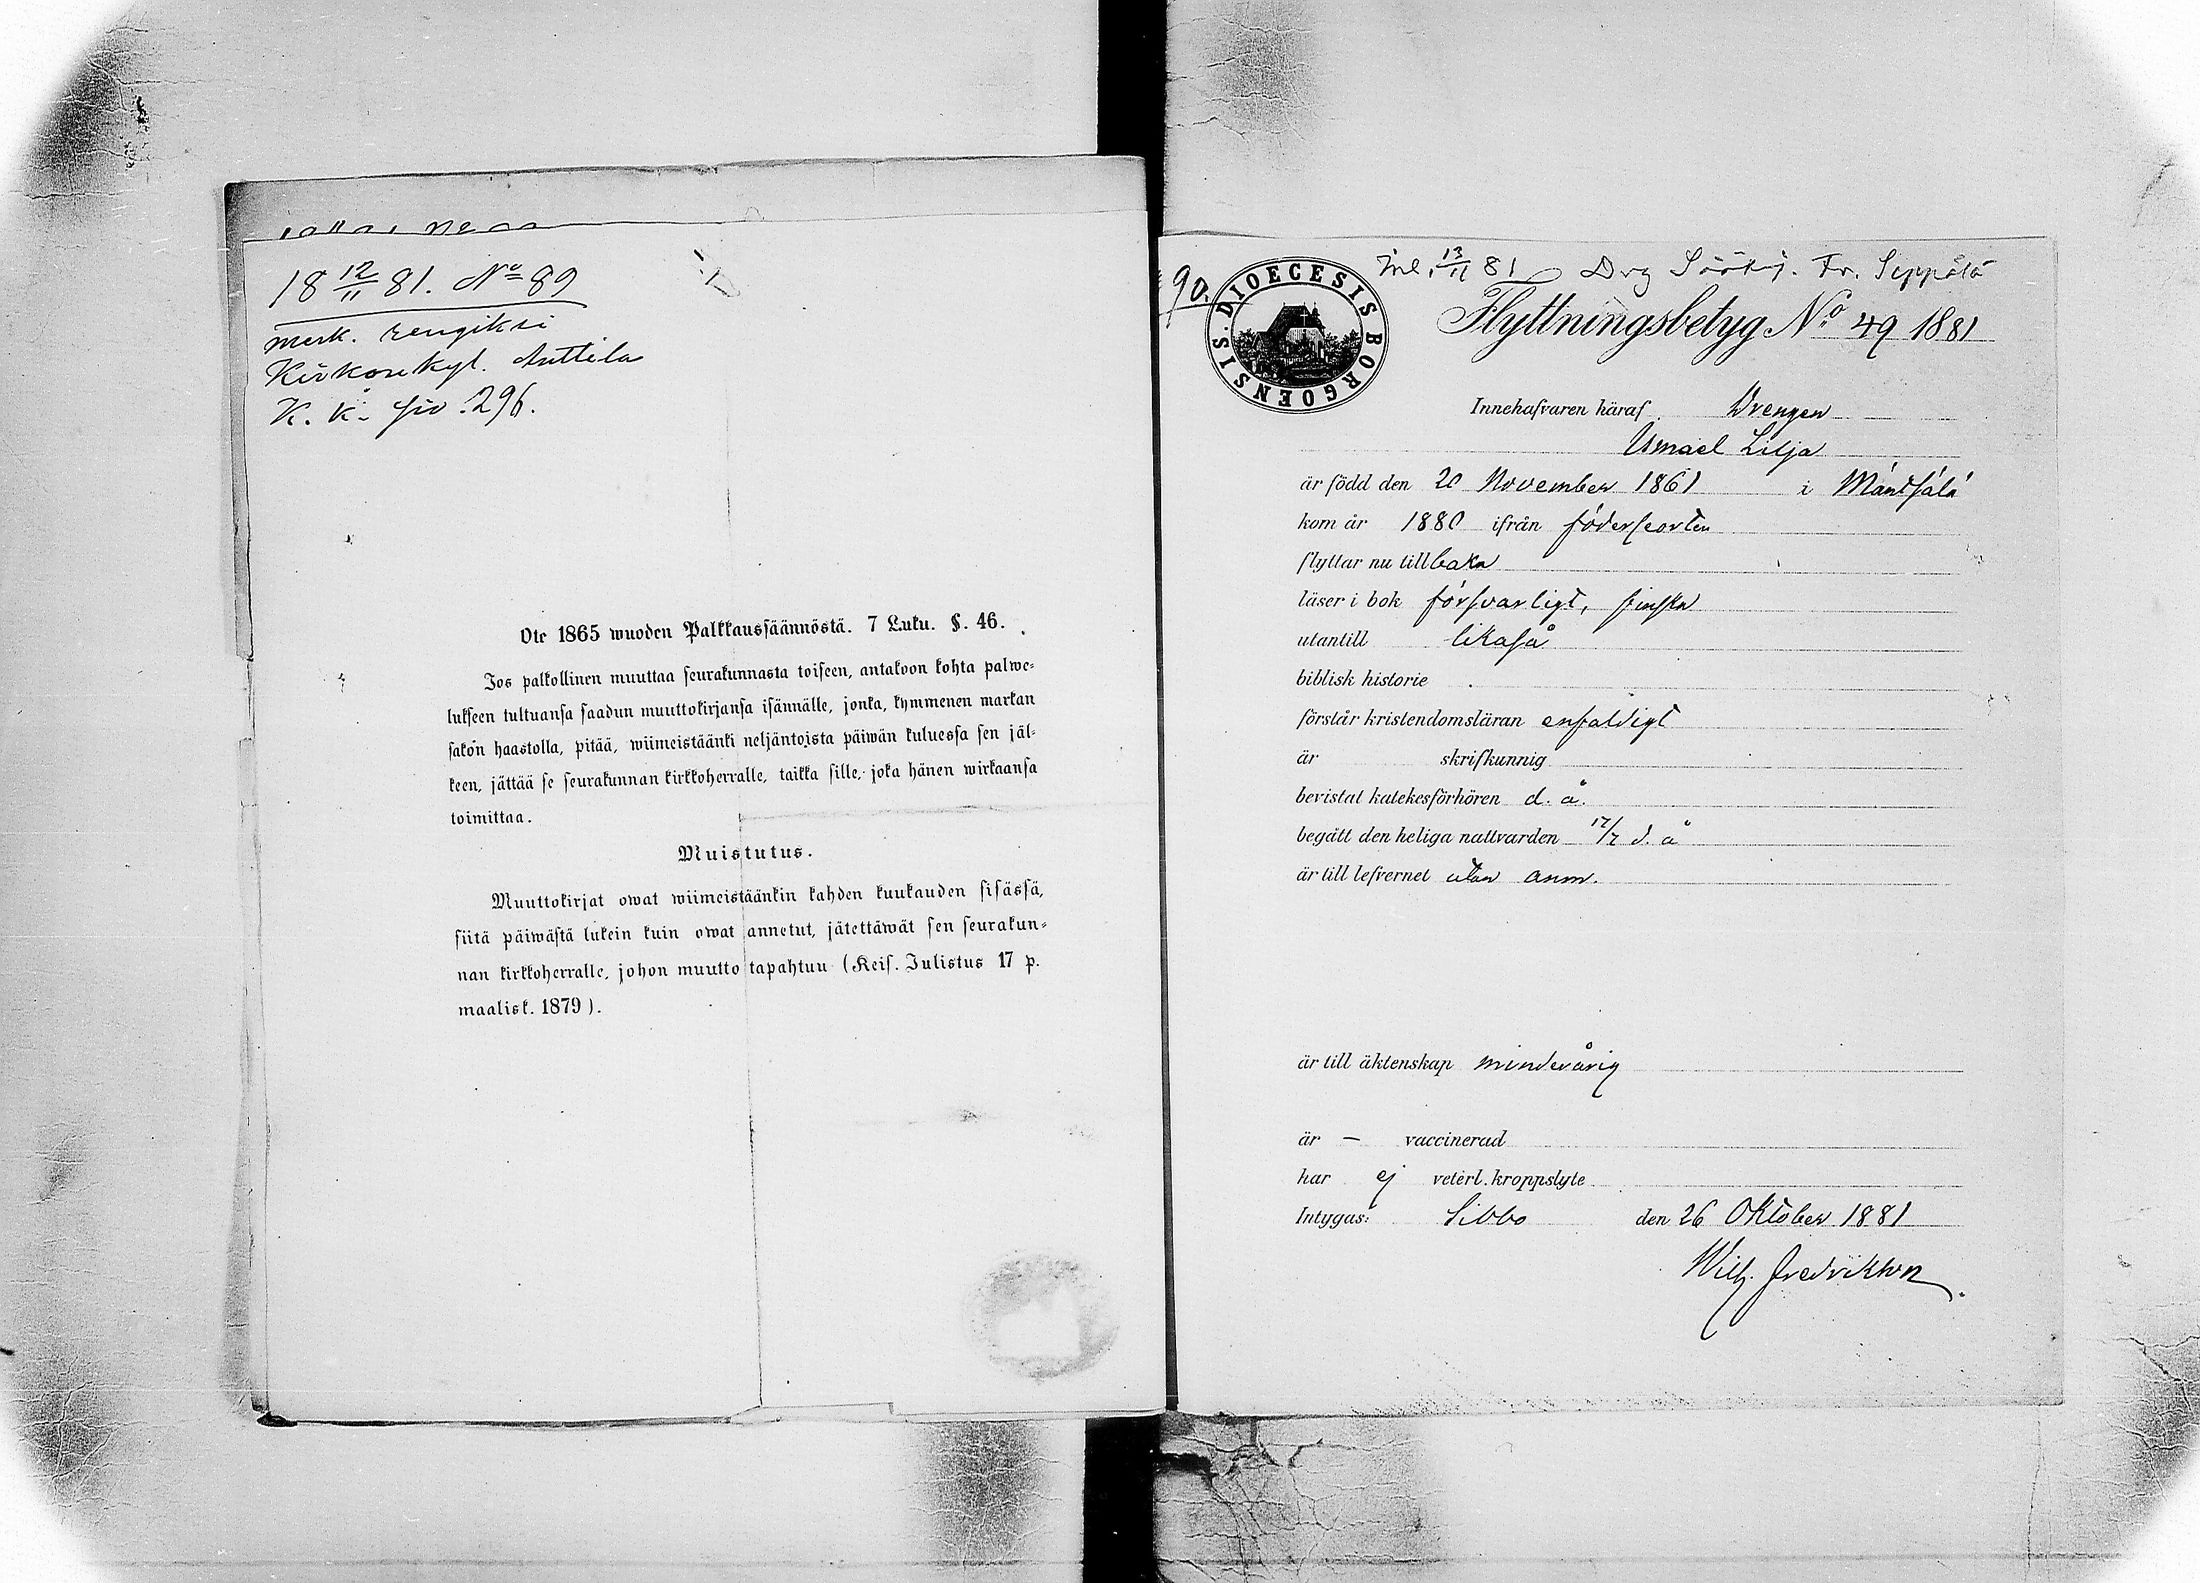 18 12/11 81. No 89
merk. rengiksi
Kirkonkyl. Anttila
K. k. siv. 296.
Ote 1865 wuoden Palkkaussäännöstä. 7 Luku. §. 46.
Jos palkollinen muuttaa seurakunnasta toiseen, antakoon kohta palwe-
lukseen tultuansa saadun muuttokirjansa isännälle, jonka, kymmenen markan
sakon haastolla, pitää, wiimeistäänki neljäntoista päiwän kuluessa sen jäl-
keen, jättää se seurakunnan kirkkoherralle, taikka sille, joka hänen wirkaansa
toimittaa.
Muistutus.
Muuttokirjat owat wiimeistäänkin kahden kuukauden sisässä,
siitä päiwästä lukein kuin owat annetut, jätettäwät sen seurakun-
nan kirkkoherralle, johon muutto tapahtuu (Keis. Julistus 17 p.
maalisk. 1879).
90.
Inl. 13/11 81 Drg Fr. Seppälä
DIOECESIS BORGOENSIS.
Flyttningsbetyg No. 49 1881
Innehafvaren häraf Drengen
Ismael Lilja
är född den 20 November 1861 i Mäntsälä
kom år 1880 ifrån födelseorten
flyttar nu tillbaka
läser i bok försvarligt, finska
utantill likaså
biblisk historie
förstår kristendomsläran enfaldigt
är skrifkunnig
bevistat katekesförhören d. å.
begått den heliga nattvarden 17/7 d. å
är till lefvernet utan anm.
är till äktenskap minderårig
är — vaccinerad
har ej veterl. kroppslyte
Intygas: Sibbo den 26 Oktober 1881
Wilh. Fredrikson